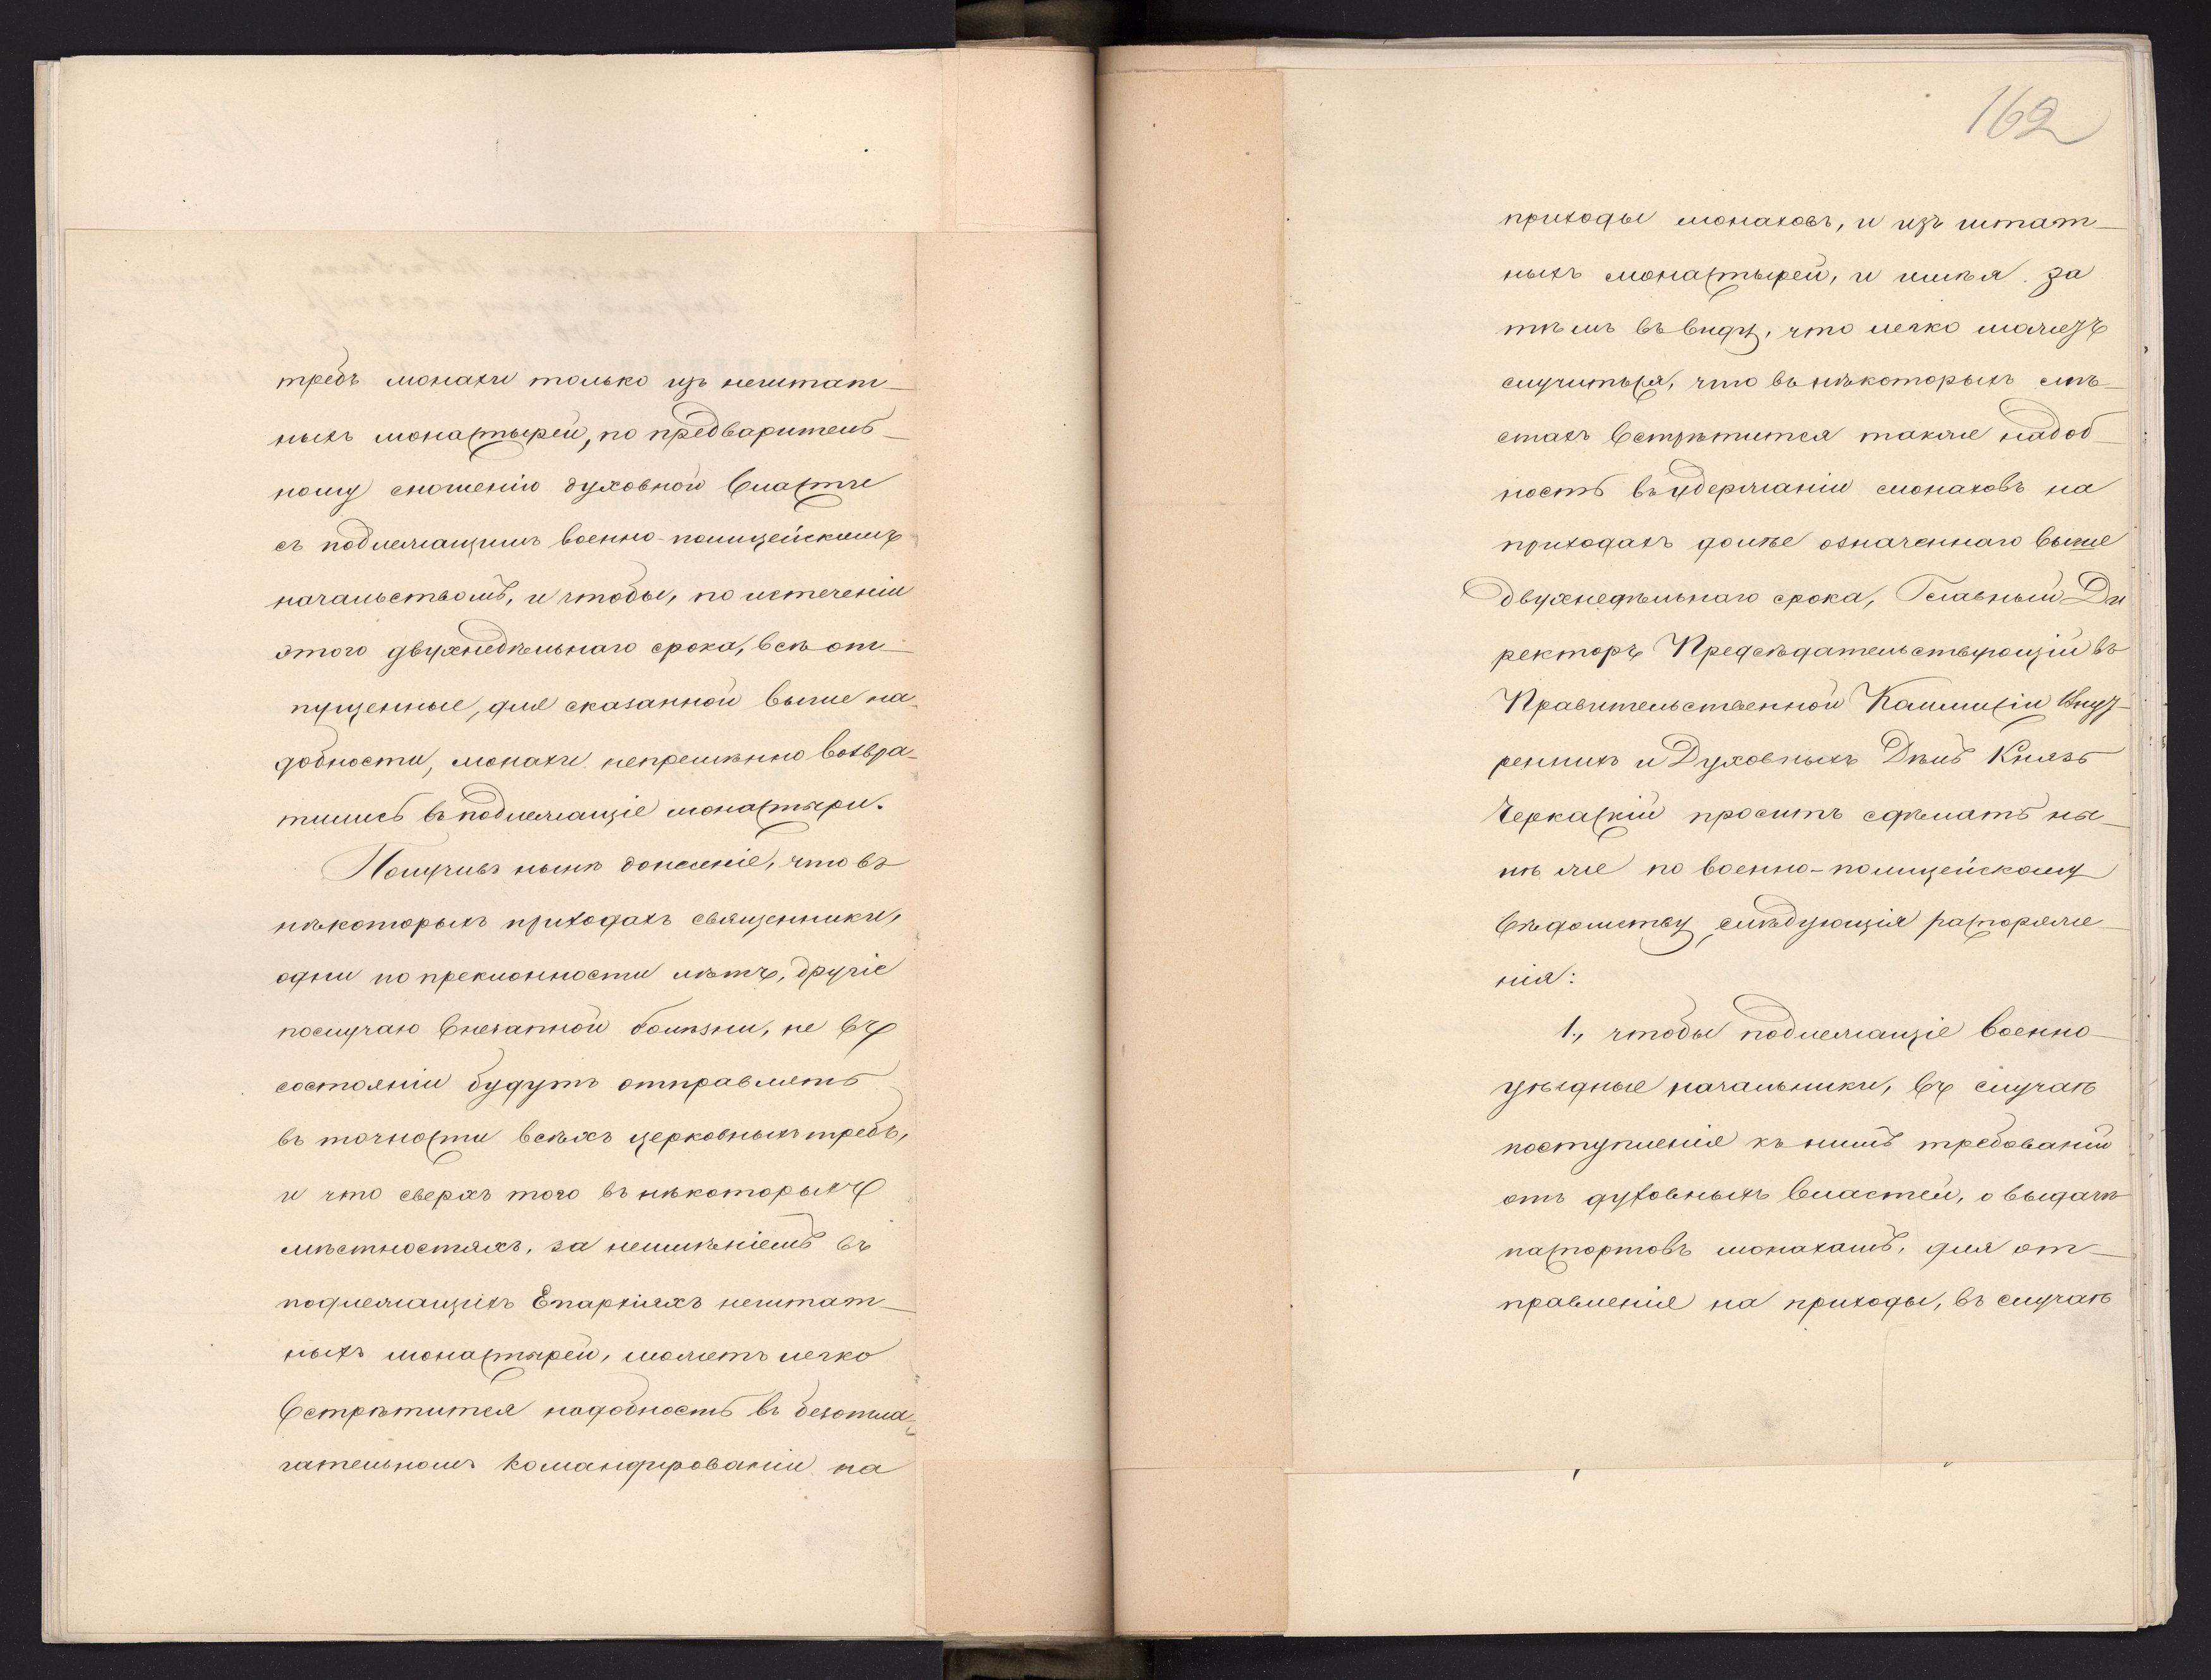 требъ монахи только изъ нештат-
ныхъ монастырей, по предваритель-
ному сношенію духовной власти
съ подлежащимъ военно-полицейскимъ
начальствомъ, и чтобы, по истеченіи
этого двухнедѣльнаго срока, всѣ от-
пущенные, для сказанной выше на-
добности, монахи непремѣнно возвра-
тились въ подлежащіе монастыри.
Получивъ нынѣ донесеніе, что въ
нѣкоторыхъ приходахъ священники,
одни по преклонности лѣтъ, другіе
послучаю внезапной болѣзни, не въ
состояніи будутъ отправлять
въ точности всѣхъ церковныхъ требъ,
и что сверхъ того въ нѣкоторыхъ
мѣстностяхъ, за неимѣніемъ въ
подлежащихъ Епархіяхъ нештат-
ныхъ монастырей, можетъ легко
встрѣтится надобность въ безотла-
гательномъ командированіи на
162
приходы монаховъ, и изъ штат-
ныхъ монастырей, и имѣя за
тѣмъ въ виду, что легко можетъ
случиться, что въ нѣкоторыхъ мѣ-
стахъ встрѣтится также надоб-
ность въ удержаніи монаховъ на
приходахъ долѣе означеннаго выше
двухнедѣльнаго срока, Главный Ди
ректоръ Предсѣдательствующій въ
Правительственной Коммисіи Внут-
реннихъ и Духовныхъ Дѣлъ Князь
Черкаскій проситъ сдѣлать ны-
нѣ же по военно-полицейскому
вѣдомству, слѣдующія распоряже-
нія:
1., чтобы подлежащіе военно-
уѣздные начальники, въ случаѣ
поступленія къ нимъ требованій
отъ духовныхъ властей, о выдачѣ
паспортовъ монахамъ, для от-
правленія на приходы, въ случаѣ